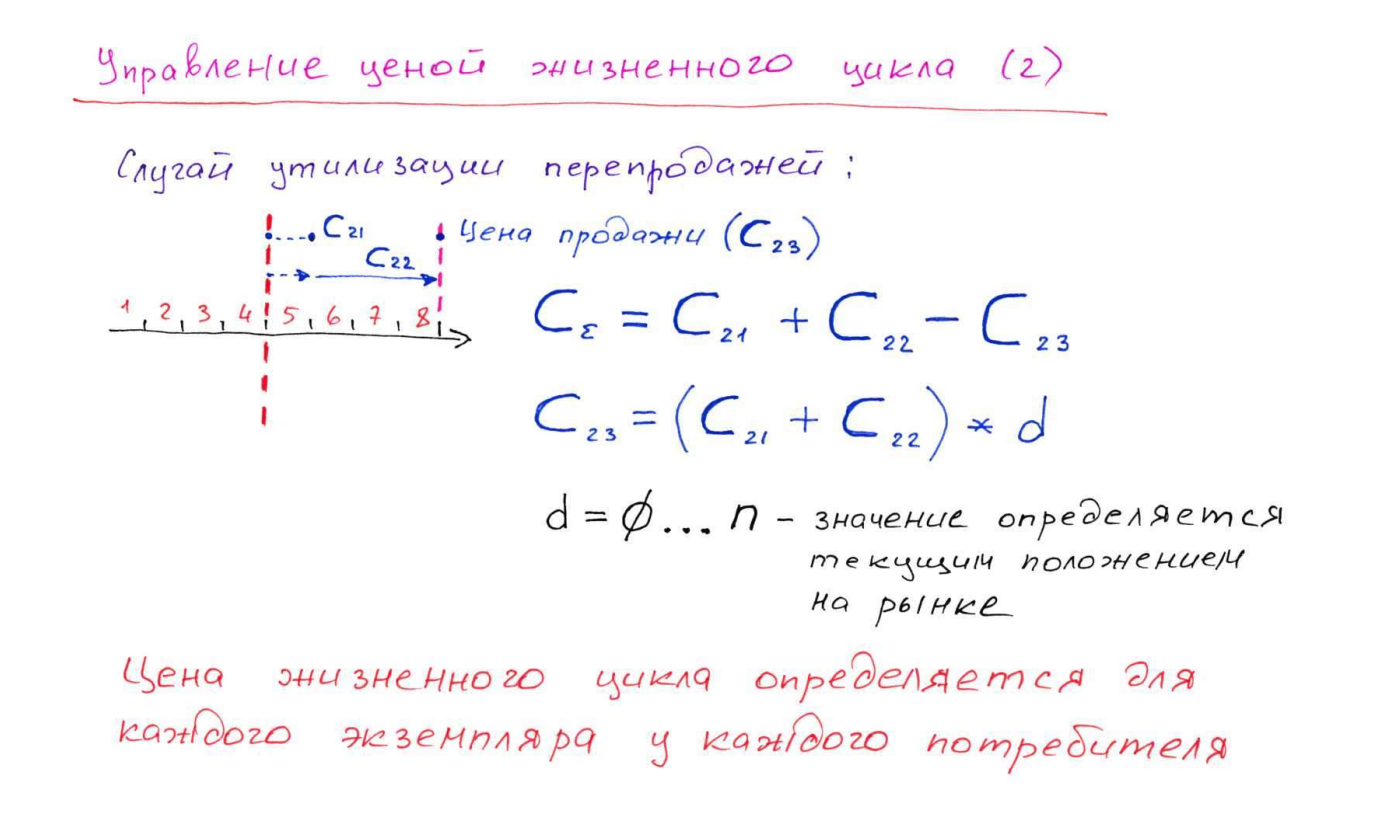 Управление ценой жизненного цикла (2)
Случай утилизации перепродажей:
C21
Цена продажи (C23)
C22
1 2 3 4 5 6 7 8
Cε = C21 + C22 - C23
C23 = (C21 + C22) * d
d = ø... n - значение определяется
текущим положением
на рынке
Цена жизненного цикла определяется для
каждого экземпляра у каждого потребителя